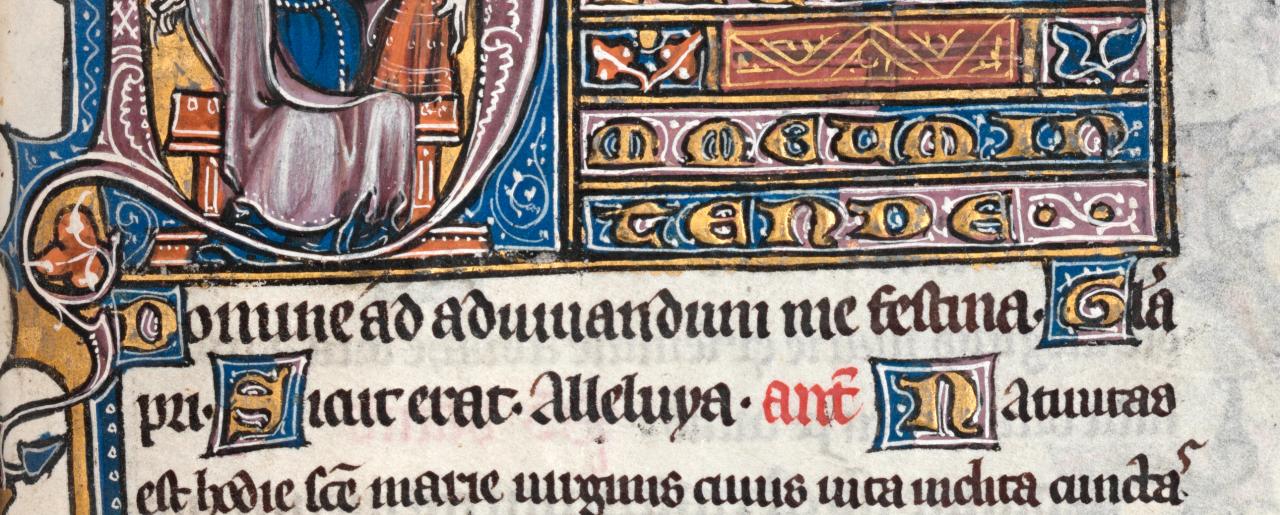 M MEUM IN
TENDE
Domine ad adiuuandum me festina. Gla
pri. Sicut erat. Alleluya. ant̄ Natiuitas
est hodie sc̄e marie uirginis cuius uita inclita cuncta